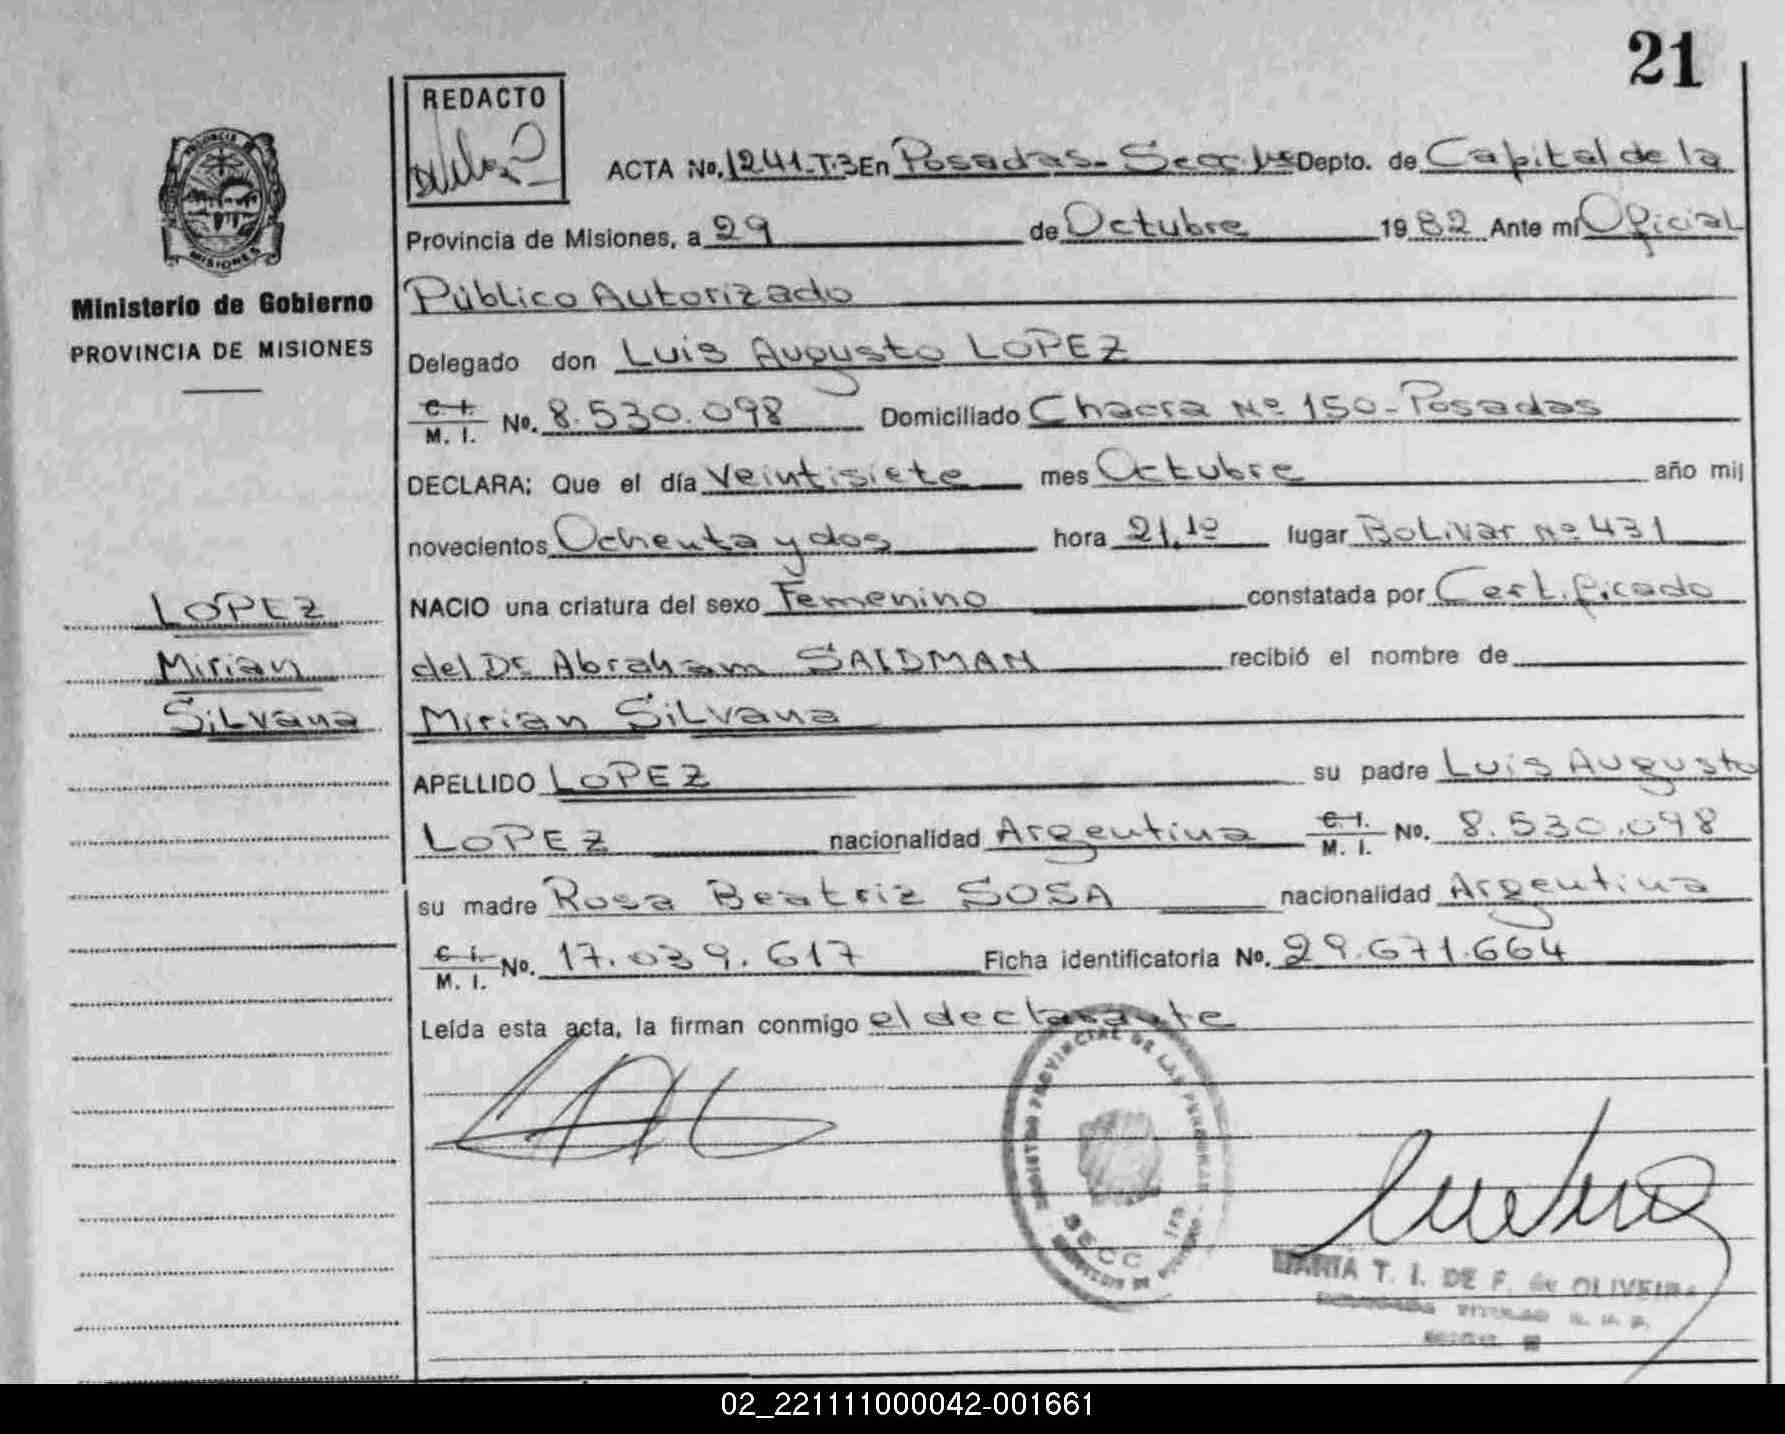 21
REDACTO
ACTA No. 1241-T.3 En Posadas- Secc. 1ra Depto. de Capital de la
Provincia de Misiones, a 29 de Octubre 1982 Ante mí Oficial
Público Autorizado
Delegado don Luis Augusto LOPEZ
C. I. M. I. No. 8.530.098 Domiciliado Chacra Nº 150-Posadas
DECLARA: Que el día Veintisiete mes Octubre año mil
novecientos Ochenta y dos hora 21,10 lugar Bolivar nº 431
NACIO una criatura del sexo Femenino constatada por Certificado
del Dr Abraham SAIDMAN recibió el nombre de
Mirian Silvana
APELLIDO LOPEZ su padre Luis Augusto
LOPEZ nacionalidad Argentina C. I. M. I. No. 8.530.098
su madre Rosa Beatriz SOSA nacionalidad Argentina
C. I. M. I. No. 17.039.617 Ficha identificatoria No. 29.671.664
Leída esta acta, la firman conmigo el declarante
PROVINCIA DE
MISIONES
Ministerio de Gobierno
PROVINCIA DE MISIONES
LOPEZ
Mirian
Silvana
REGISTRO PROVINCIAL DE LAS PERSONAS
SECC 1ra
MARIA T. I. DE F. de OLIVEIRA
02_221111000042-001661